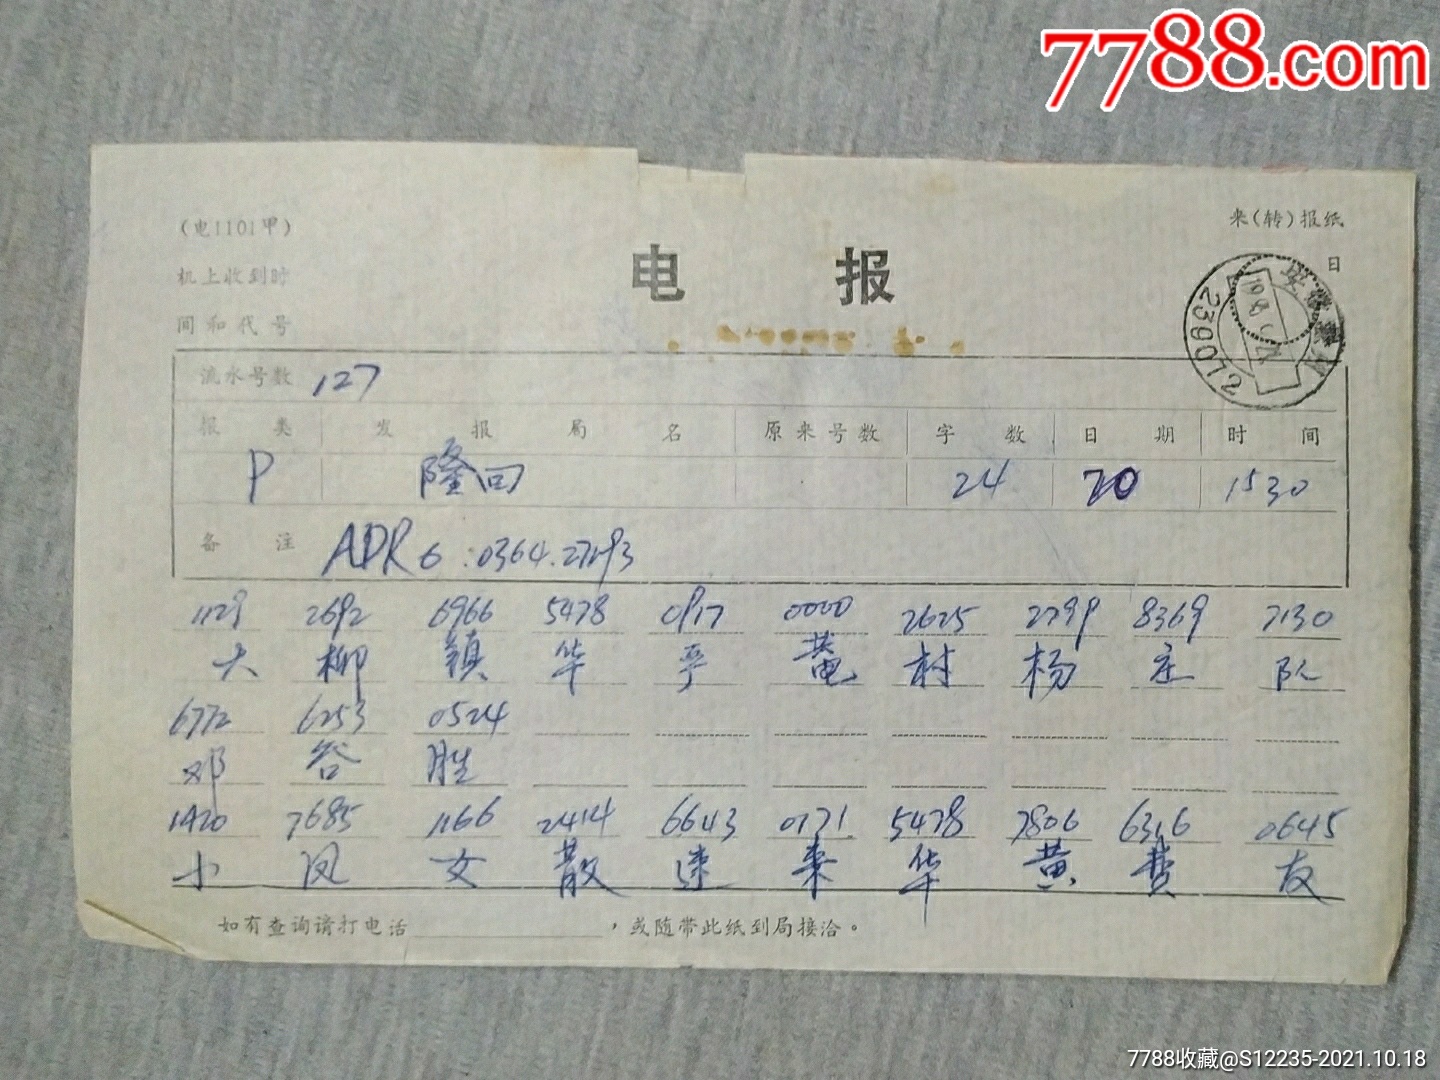 7788.com
(电1101甲)
来(转)报纸
机上收到时
日
电 报
间和代号
230072
流水号数 127
报类 发报局名 原来号数 字数 日期 时间
P 隆回 24 20 1530
备注 ADR 6:0364.27193
1129 2692 6966 5478 0917 0000 2625 2799 8369 7130
大 柳 镇 华 乎 村 杨 庄 队
6772 6253 0524
邓 谷 胜
1420 7685 1166 2414 6643 0171 5478 7806 6316 0645
小 凤 女 散 速 来 华 黄 费 友
如有查询请打电话 ，或随带此纸到局接洽。
7788收藏@S12235-2021.10.18